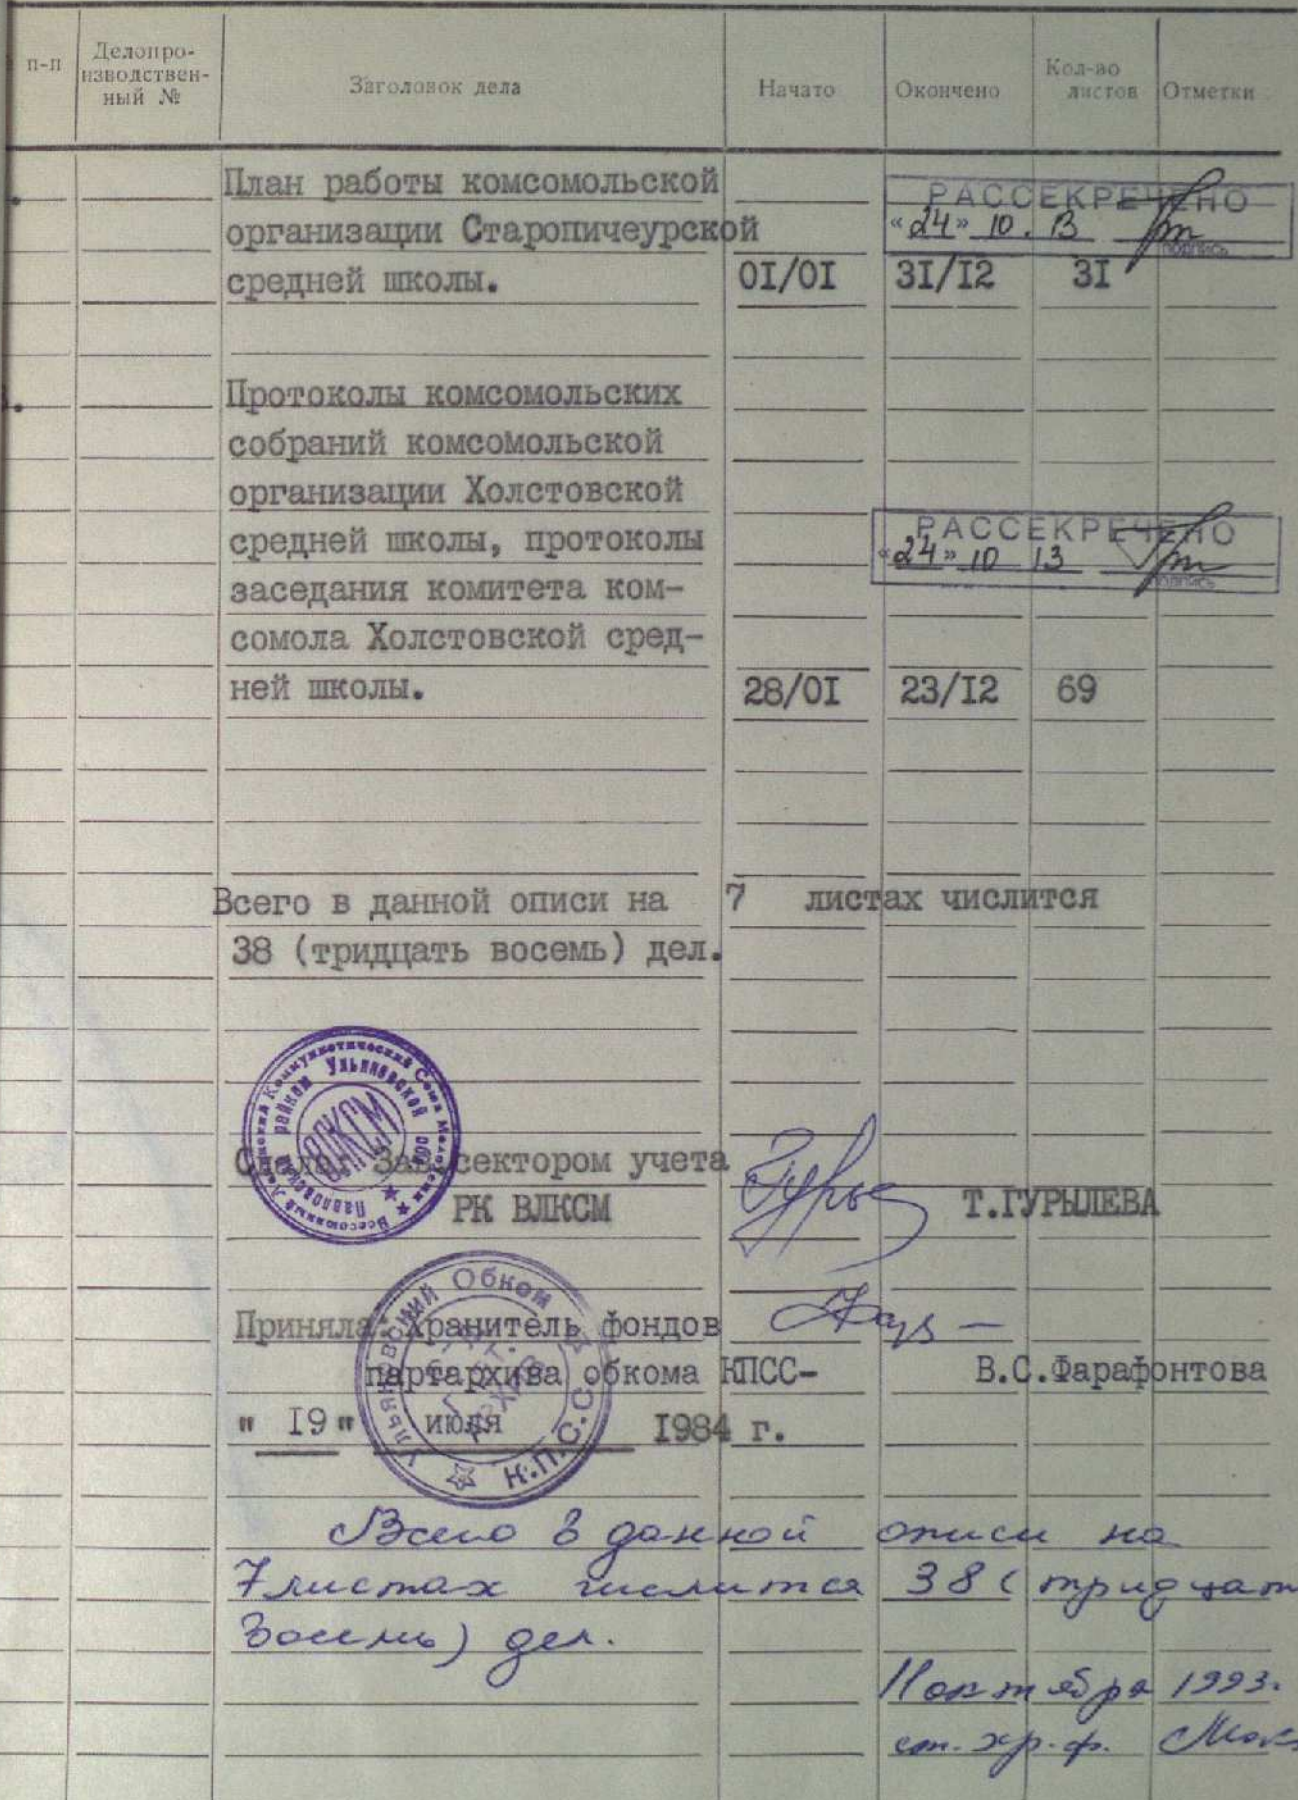 п-п
Делопро-
изводствен-
ный №
Заголовок дела
Начато
Окончено
Кол-во
листов
Отметки
План работы комсомольской
организации Старопичеурской
средней школы. 01/01 31/12 31
РАССЕКРЕЧЕНО
"24" 10. 13
подпись
Протоколы комсомольских
собраний комсомольской
организации Холстовской
средней школы, протоколы
заседания комитета ком-
сомола Холстовской сред-
ней школы. 28/01 23/12 69
РАССЕКРЕЧЕНО
"24" 10 13
подпись
Всего в данной описи на 7 листах числится
38 (тридцать восемь) дел.
Всесоюзный Ленинский Коммунистический Союз Молодежи
Павловский райком Ульяновской обл.
ВЛКСМ
Сдала: Зав. сектором учета
РК ВЛКСМ Т.ГУРЫЛЕВА
Ульяновский Обком
К.П.С.С.
Приняла: Хранитель фондов
партархива обкома КПСС- В.С.Фарафонтова
" 19 " июля 1984 г.
Всего в данной описи на
7 листах числится 38 (тридцат
восемь) дел.
11 октября 1993.
ст. хр. ф.